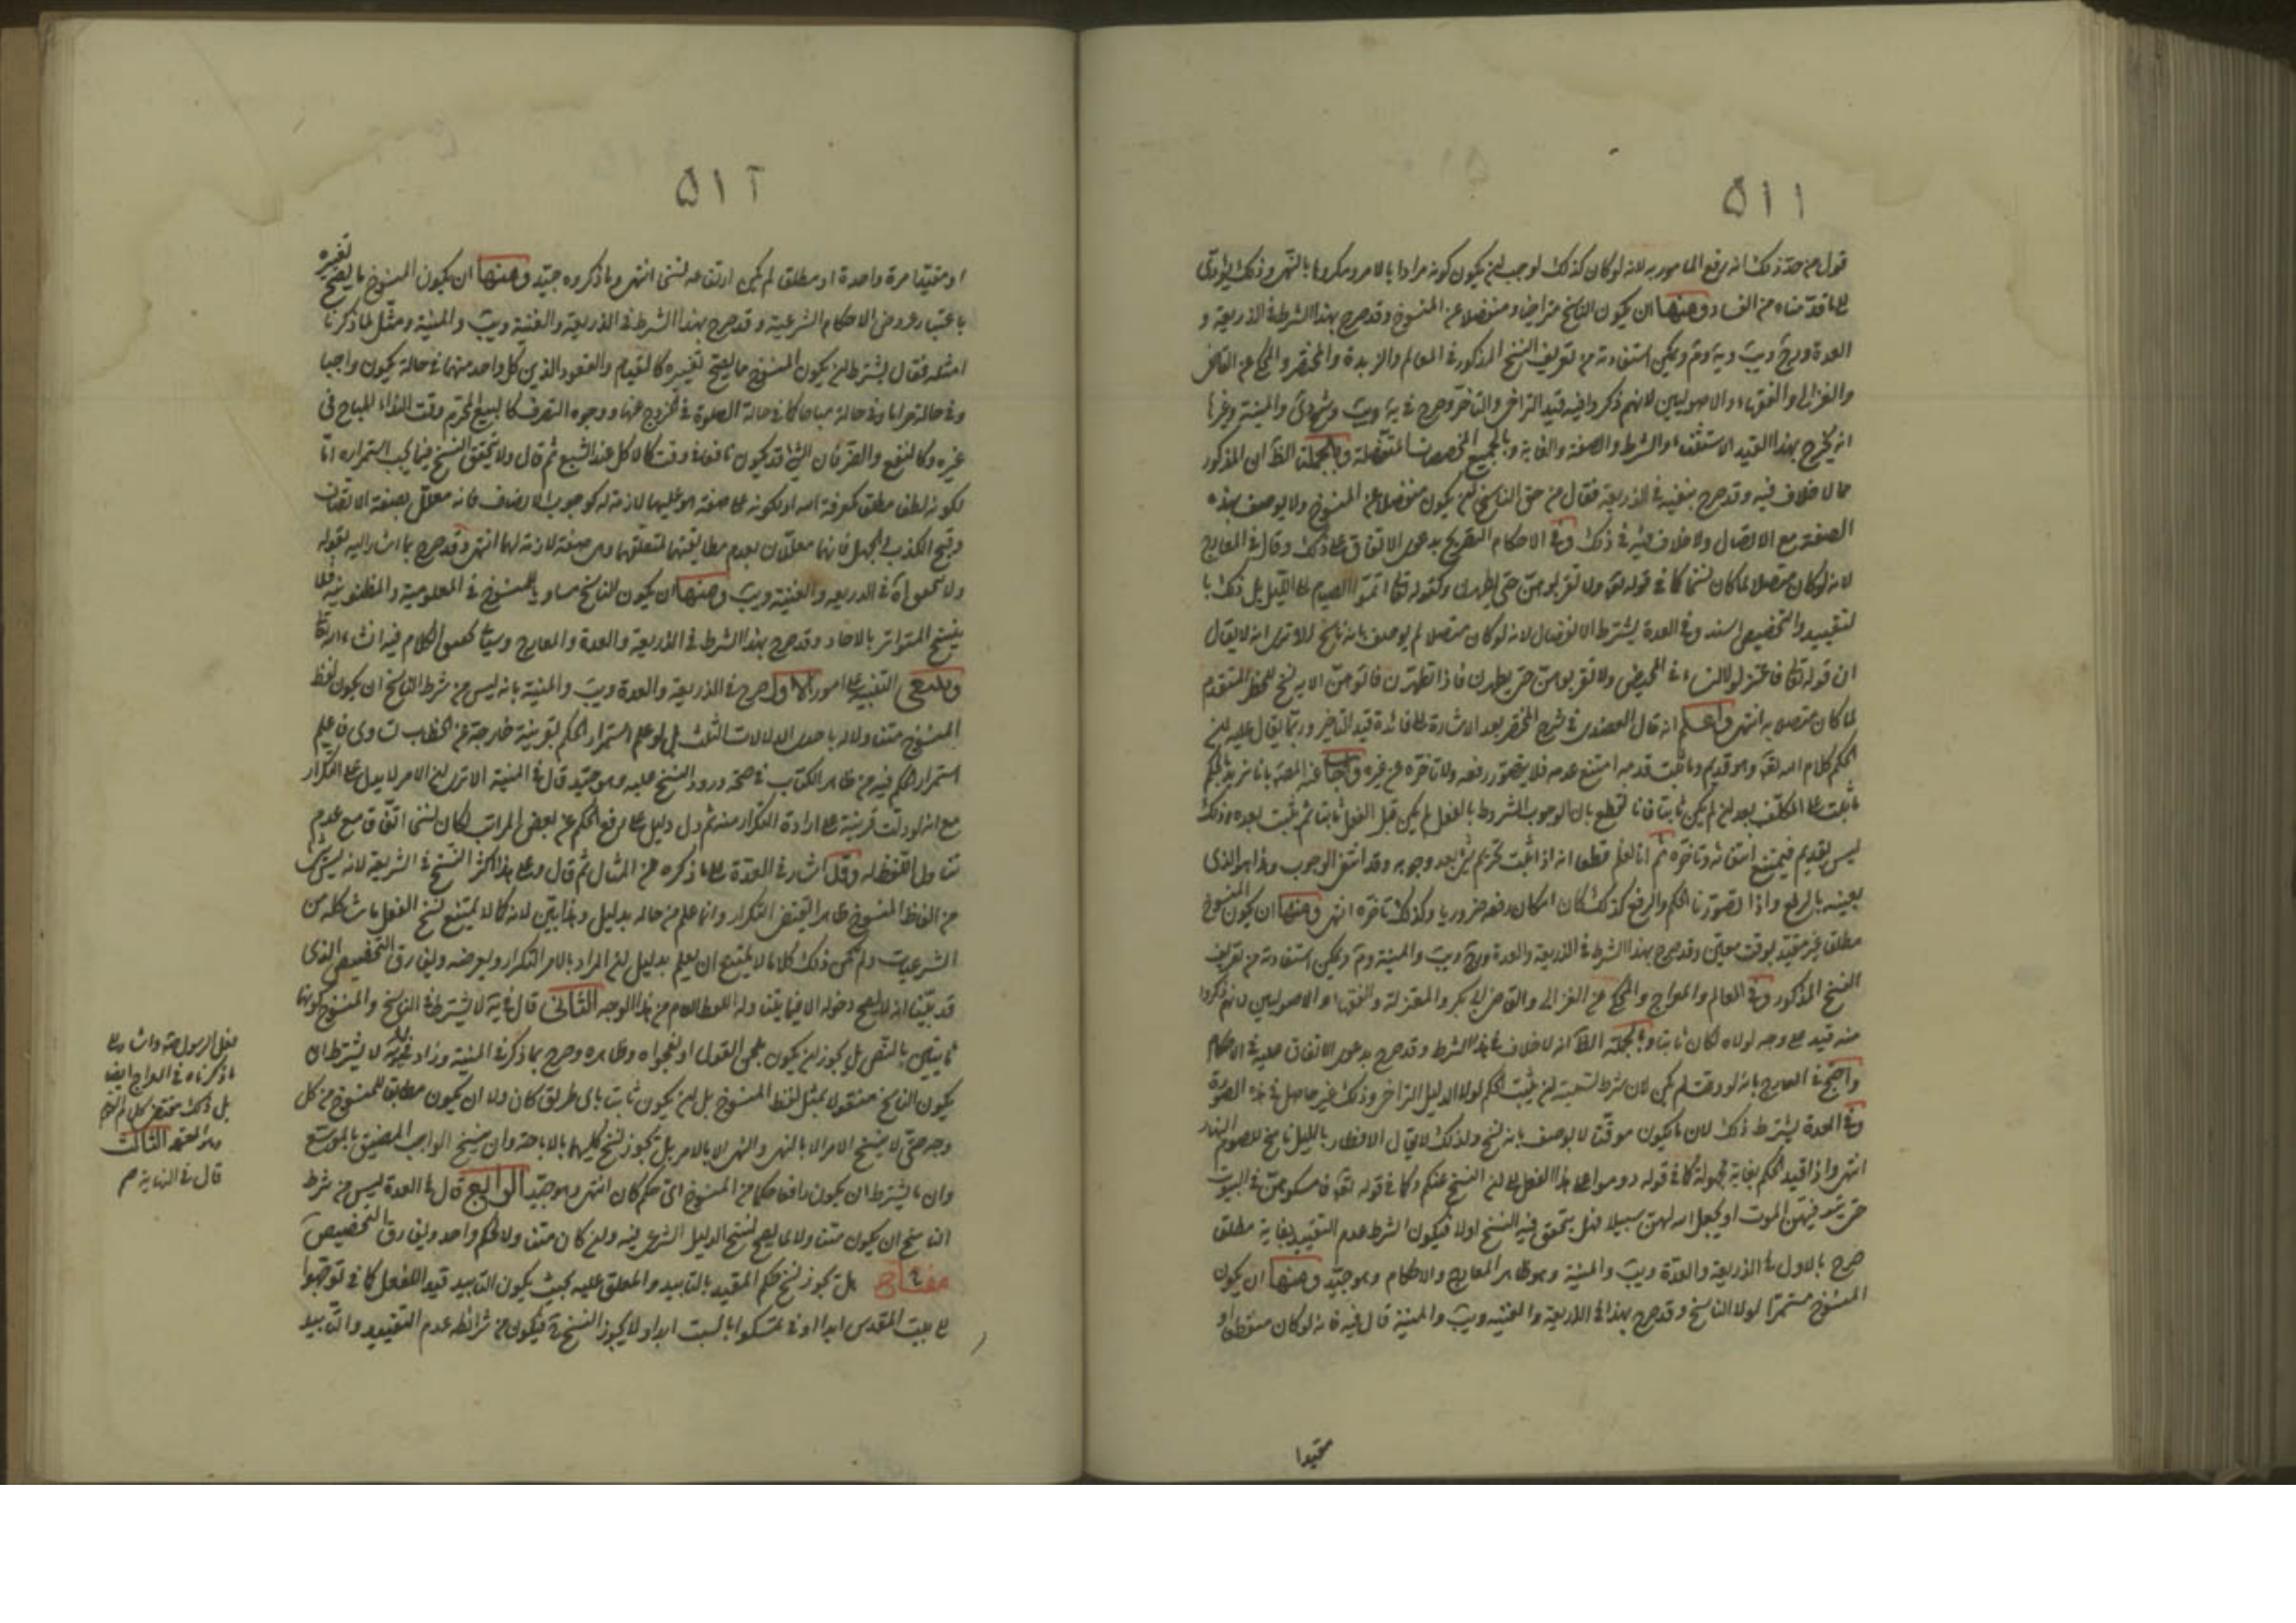 ٥١١
قول من حد ذلك انه رفع المامور به لانه لو كان كذلك لوجب ان يكون كونه مرادا بالامر ومكروها بالنهى وذلك يؤدى
الى ما قدمناه من الفساد ومنها ان يكون الناسخ متراخيا ومنفصلا عن المنسوخ وقد صرح بهذا الشرط فى الذريعة و
العدة وبرج ويب ويمكن استفادته من تعريف النسخ المذكور فى المعالم والزبدة والمختصر والمحكى عن القاضى
والغزالى والفقهاء والاصوليين لانهم ذكروا فيه قيد التراخى والتاخر وصرح فى يه ويب وشرح دى والمنية وغيرها
انه يخرج بهذا القيد الاستثناء والشرط والصفة والغاية وبالجميع المخصصات المتصلة وبالجملة الظ ان المذكور
مما لا خلاف فيه وقد صرح بنفيه فى الذريعة فقال من حق الناسخ ان يكون منفصلا عن المنسوخ ولا يوصف بهذه
الصفة مع الاتصال ولا خلاف فى ذلك وفى الاحكام التصريح بدعوى الاتفاق على ذلك وقال فى المعارج
لانه لو كان متصلا لما كان نسخا كما فى قوله تعه ولا تقربوهن حتى يطهرن وكقوله تعه اتموا الصيام الى الليل بل ذلك با
لتقييد والتخصيص اسند وفى العدة يشترط الانفصال لانه لو كان متصلا لم يوصف بانه ناسخ الا ترى انه لا يقال
ان قوله تعه فاعتزلوا النساء فى المحيض ولا تقربوهن حتى يطهرن فاذا تطهرن فاتوهن الاية نسخ للحظر المتقدم
لما كان متصلا به انتهى واعلم انه قال العضدى فى شرح المختصر بعد الاشارة الى فائدة قيد التاخر وربما يقال عليه ان
الحكم كلام الله تعه وهو قديم وما ثبت قدمه امتنع عدمه فلا يتصور رفعه ولا تاخره عن غيره واجاب عنه المص بانا نريد بالحكم
ما ثبت على المكلف بعد ان لم يكن ثابتا فانا نقطع بان الوجوب المشروط بالعقل لم يكن قبل العقل ثابتا ثم ثبت بعده وذلك
ليس بقديم فيمتنع انتفائه وتاخره ثم انا نعلم قطعا انه اذا اثبت تحريم شئ بعد وجوبه وقد انتفى الوجوب وهذا هو الذى
نعنيه بالرفع واذا تصورنا الحكم والرفع كذلك كان امكان رفعه ضروريا وكذلك تاخره انتهى ومنها ان يكون المنسوخ
مطلقا غير مقيد بوقت معين وقد صرح بهذا الشرط فى الذريعة والعدة وبرج ويب والمنية ويمكن استفادته من تعريف
النسخ المذكور فى المعالم والمعارج والمحكى عن الغزالى والقاضى ابى بكر والمعتزلة والفقهاء والاصوليين لانهم ذكروا
منه قيد على وجه لولاه لكان ثابتا وبالجملة الظ انه لا خلاف فى هذا الشرط وقد صرح بدعوى الاتفاق عليه فى الاحكام
واحتج فى المعارج بانه لو وقت لم يكن لان شرط تسميته ان يثبت الحكم لولا الدليل المتراخى وذلك غير حاصل فى هذه الصورة
وفى العدة يشترط ذلك لان ما يكون موقتا لا يوصف بانه نسخ ولذلك لا يقال الافطار بالليل ناسخ للصوم النهار
انتهى واذا قيد الحكم بغاية مجهولة كما فى قوله دوموا على هذا الفعل الى ان انسخ عنكم وكما فى قوله تعه فامسكوهن فى البيوت
حتى يتوفيهن الموت او يجعل الله لهن سبيلا فهل يتحقق فيه النسخ او لا فيكون الشرط عدم التقييد بغاية مطلقا
صرح بالاول فى الذريعة والعدة ويب والمنية وهو ظاهر المعارج والاحكام وهو جيد ومنها ان يكون
المنسوخ مستمرا لولا الناسخ وقد صرح بهذا فى الذريعة والغنية ويب والمنية قال فيه فانه لو كان منقطعا او
مقيدا
٥١٢
او مقيدا مرة واحدة او مطلقا لم يكن ارتفاعه نسخا انتهى وما ذكروه جيد ومنها ان يكون المنسوخ ما يصح تغيره
باعتبار عروض الاحكام الشرعية وقد صرح بهذا الشرط فى الذريعة والغنية ويب والمنية ومثل لما ذكرنا
امثلة فقال يشترط ان يكون المنسوخ مما يصح تغييره كالقيام والقعود الذين كل واحد منهما فى حالة يكون واجبا
وفى حالة حراما وفى حالة مباحا كما فى حالة الصلوة فى الخروج عنها ووجوه التصرف كالبيع المحرم وقت النداء المباح فى
غيره وكالنفع والضر فان الشئ قد يكون نافعا فى وقت كالاكل عند الشبع ثم قال ولا يتحقق النسخ فيما يجب استمراره اما
لكونه لطفا مطلقا كمعرفة الله او لكونه على صفة هو عليها لازمة له كوجوب الانصاف فانه معلل بصفة الانصاف
وقبح الكذب والجهل فانهما معللان بعدم مطابقتهما لمتعلقهما وهى صفة لازمة لهما انتهى وقد صرح بما اشار اليه بقوله
ولا يتحقق اه فى الذريعة والغنية ويب ومنها ان يكون الناسخ مساويا للمنسوخ فى المعلومية والمظنونية فلا
ينسخ المتواتر بالاحاد وقد صرح بهذا الشرط فى الذريعة والعدة والمعارج وسياتى تحقيق الكلام فيه انشاء الله تعه
وينبغى التنبيه على امور الاول صرح فى الذريعة والعدة ويب والمنية بانه ليس من شرط الناسخ ان يكون لفظ
المنسوخ متناولا له باحدى الدلالات الثلث بل لو علم استمرار الحكم بقرينة خارجة عن الخطاب تساوى ما علم
استمرار الحكم فيه من ظاهر الكتاب فى صحة ورود النسخ عليه وهو جيد قال فى المنية الا ترى ان الامر لا يدل على التكرار
مع انه لو دلت قرينة على ارادة التكرار منه ثم دل دليل على رفع الحكم عن بعض المرات لكان نسخا اتفاقا مع عدم
تناول اللفظ له وقد اشار فى العدة على ما ذكره من المثال ثم قال وعلى هذا اكثر النسخ فى الشريعة لانه ليس شئ
من الفاظ المنسوخ ظاهرا لتقتضى التكرار وانما علم من حاله بدليل وهذا بين لانه كما لا يمتنع نسخ الفعل بما شاكله من
الشرعيات ولم يكن ذلك كلاما لا يمتنع ان يعلم بدليل ان المراد بالامر التكرار ويعرضه ويفارق التخصيص الذى
قد بينا انه لا يصح دخوله الا فيما يتناوله اللفظ العام من هذا الوجه الثانى قال فى يه لا يشترط فى الناسخ والمنسوخ كونهما
ثابتين بالنص بل يجوز ان يكون بلحن القول او بفحواه وظاهره وصرح بما ذكر فى المنية وزاد فيه لا يشترط ان
يكون الناسخ منقولا بمثل لفظ المنسوخ بل ان يكون ثابتا باى طريق كان ولا ان يكون مطابقا للمنسوخ من كل
وجه حتى لا ينسخ الامر الا بالنهى والنهى الا بالامر بل يجوز نسخ كليهما بالاباحة وان ينسخ الواجب المضيق بالموسع
وان ما يشترط ان يكون رافعا حكما من المنسوخ اى حكم كان انتهى وهو جيد الرابع قال فى العدة ليس من شرط
الناسخ ان يكون متناولا لما يصح نسخ الدليل الشرعى فيه وان كان متناولا لحكم واحد ويفارق التخصيص
مفتاح هل يجوز نسخ حكم المقيد بالتابيد والمعلق عليه بحيث يكون التابيد قيدا للفعل كما فى توجهوا
الى بيت المقدس ابدا او فى تمسكوا بالسبت ابدا ولا يجوز النسخ فيكون من شرائطه عدم التقييد والتابيد
فعل الرسول ص واشار الى
ما ذكرناه فى المعارج ايضا
بل ذلك مقتضى كلام القوم
وهو المعتمد الثالث
قال فى النهاية ص